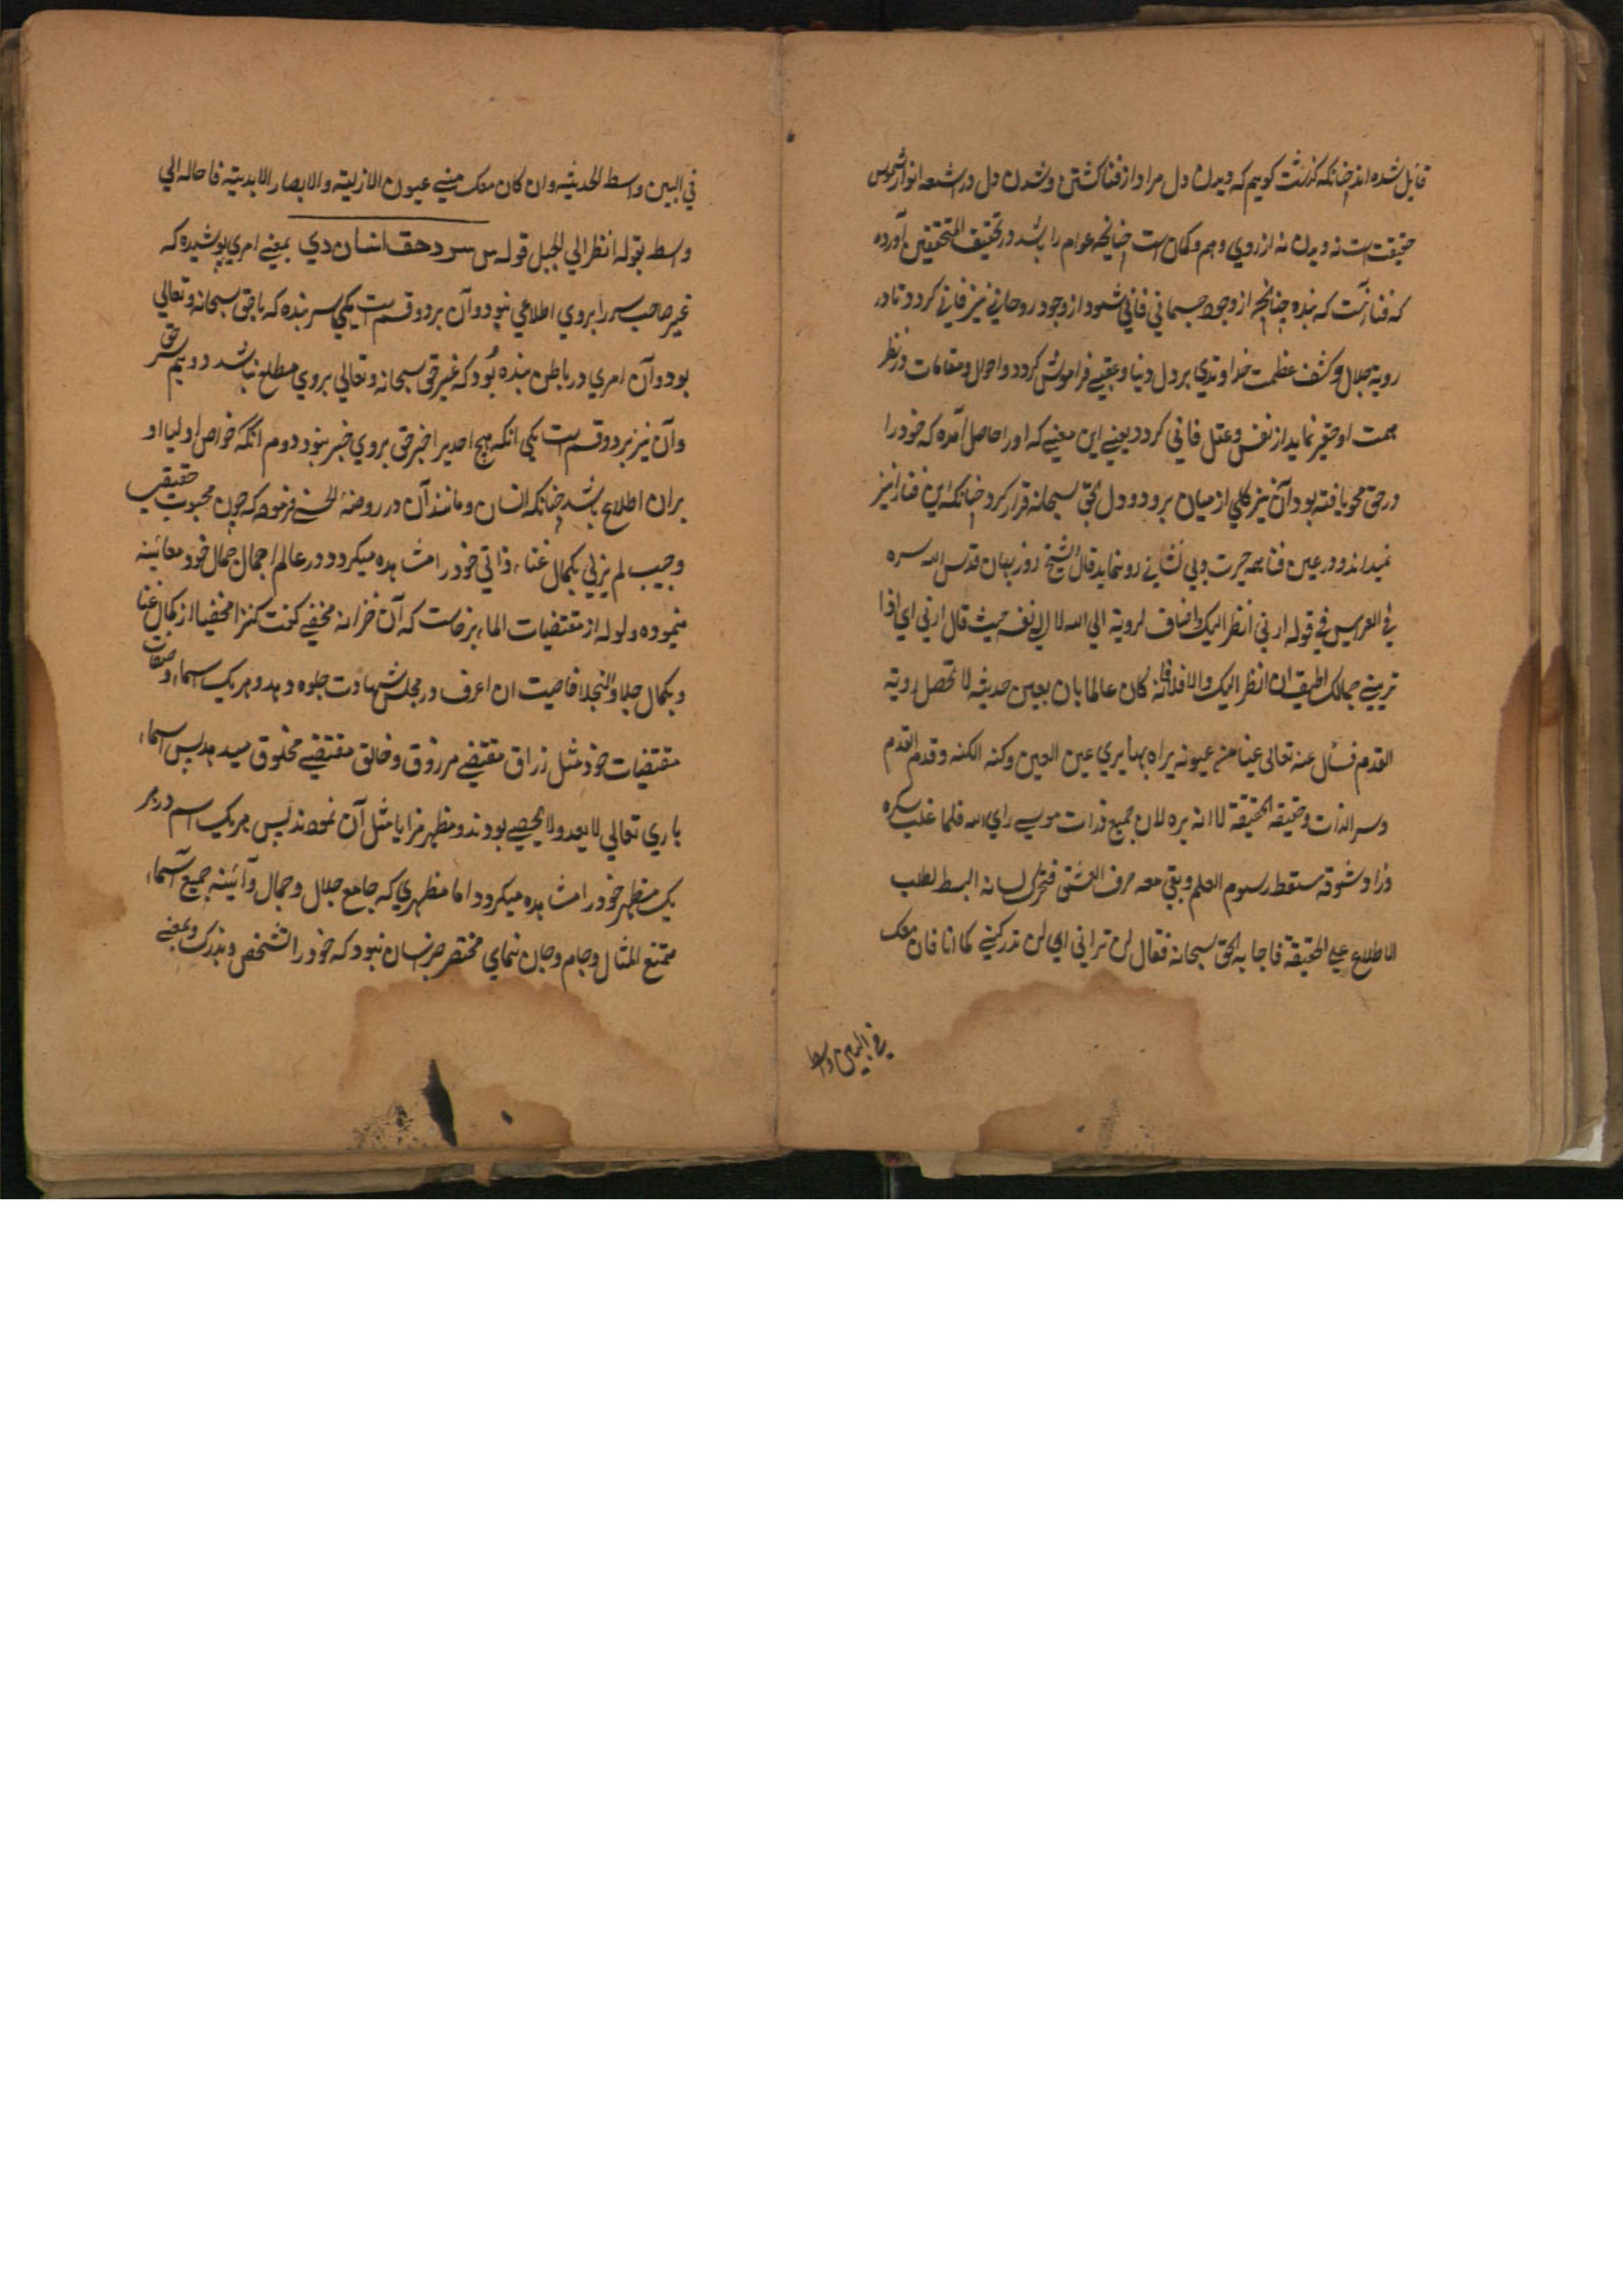 قایل شده اند چنانکه گذشت گویم که دیدن دل مراد از فنا گشتن و شدن دل در اشعه انوار شموس
حقیقت است نه دیدن نه از روی وهم و کمان است چنانچه عوام را باشد در تحقیق المتحققین آورده
که فنا آنست که بنده چنانچه از وجود جسمانی فانی شود از وجود روحانی نیز فانی کردد تا در
رویة جلال و کشف عظمت خداوندی بر دل دنیا و عقبی فراموش کردد و احوال و مقامات در نظر
همت او حقیر نماید از نفس و عقل فانی کردد یعنی این معنی که اورا حاصل آمده که خود را
در حق محو یافته بود آن نیز کلی از میان برود و دل بحق سبحانه قرار کرد چنانکه این فنا را نیز
نمیداند و در عین فنا همه حیرت و بی نشانی رو نماید قال الشیخ روزبهان قدس الله سره
فی العرایس فی قوله ارنی انظر الیک اضاف لرویة الی الله لا الی نفسه حیث قال ارنی ای اذا
ترینی جمالک اطیق ان انظر الیک والا فلا فانه کان عالما بان بعین حدیثه لا تحصل رویة
القدم فسال عنه تعالی عینا من عیونه یراه بها یری عین العین وکنه الکنه وقدم القدم
وسر الذات وحقیقة الحقیقة لا انه یره لان جمیع ذرات موسی رای الله فلما غلب سکره
وزاد شوقه سقط رسوم العلم وبقی معه صرف العشق فتحرک لسانه البسط لطلب
الاطلاع علی الحقیقة فاجابه الحق سبحانه فقال لن ترانی ای لن تدرکنی کما انا فان معک
فی البین واسط
فی البین واسط الحدیثیه وان کان معک منی عیون الازلیته والابصار الابدیته فاحاله الی
واسط بقوله انظر الی الجبل قوله س سر دحق انسان دی بمعنی امری پوشیده که
غیر صاحب سر را بروی اطلاعی نبود و آن بر دو قسم ست یکی سر بنده که با حق سبحانه و تعالی
بود و آن امری در باطن بنده بود که غیر حق سبحانه و تعالی بروی مطلع نباشد دویم سر حق
و آن نیز بر دو قسم ست یکی انکه هیچ احدیرا خبر حق بروی خبر نبود دوم انکه خواص اولیا او
بران اطلاع باشد چنانکه انسان و مانند آن در روضة الحسنی فرموده که چون محبوب حقیقی
و حبیب لم یزلی بکمال غناء ذاتی خود را مشاهده میکرد و در عالم اجمال جمال خود معاینه
مینموده ولوله از مقتضیات الماء بر خاست که آن خزانه مخفی کنت کنزا مخفیا از کمال غنا
و بکمال جلا و النجلا فاحببت ان اعرف در مجلس شهادت جلوه دهد و هر یک اسماء و صفات
مقتضیات خود مثل رزاق مقتضی مرزوق و خالق مقتضی مخلوق میبد پس اسماء
باری تعالی لا یعد ولا یحصی بودند و مظهر مزایا مثل آن نمودند پس هر یک اسم در هر
یک مظهر خود را مشاهده میکرد و اما مظهری که جامع جلال و جمال و آئینه جمیع اسماء
ممتنع المثال و جام و جهان نمای مختصر جز انسان نبود که خود را تشخص و بدرک و بمعنی